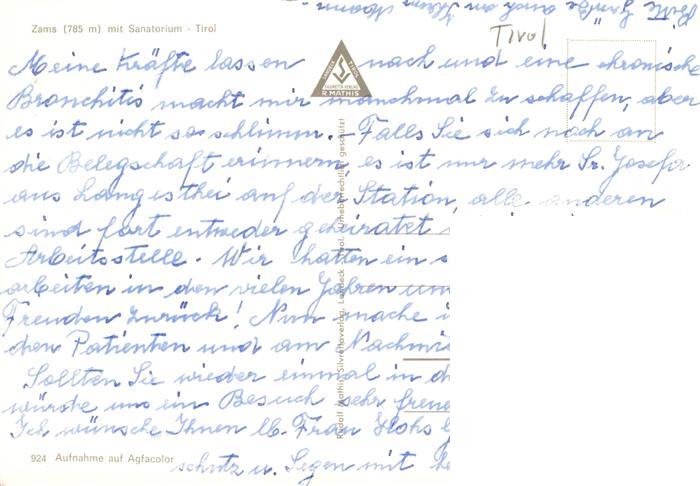 Bitte Grüße auch an Ihren Mann -
Zams (785 m) mit Sanatorium - Tirol
Tirol
Meine Kräfte lassen nach und eine chronische
Bronchitis macht mir manchmal zu schaffen, aber
es ist nicht so schlimm. - Falls Sie sich noch an
die Belegschaft erinnern, es ist nur mehr Sr. Josefa
aus Langesthei auf der Station, alle anderen
sind fort entweder geheiratet
Arbeitsstelle. Wir hatten ein s
arbeiten in den vielen Jahren un
Freuden zurück! Nun mache i
den Patienten und am Nachmi
Sollten Sie wieder einmal in d
würde uns ein Besuch sehr freue
Ich wünsche Ihnen lb. Frau
schutz u. Segen mit he
924 Aufnahme auf Agfacolor
SILVRETTA VERLAG
R. MATHIS
Rudolf Mathis, Silvrettaverlag, Landeck - Tirol. Urheberrechtlich geschützt